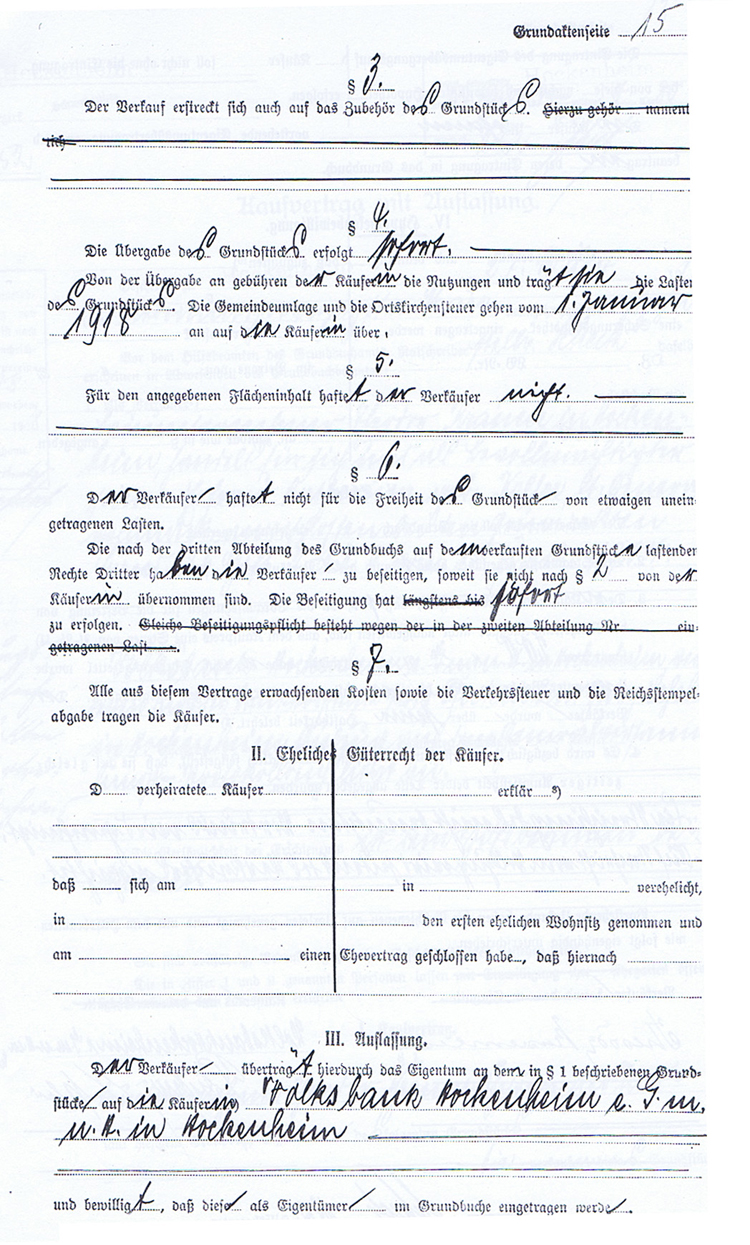 Grundaktenseite 15
§ 3.
Der Verkauf erstreckt sich auch auf das Zubehör des Grundstücks. Hierzu gehör nament
lich
§ 4.
Die Übergabe des Grundstücks erfolgt sofort.
Von der Übergabe an gebühren der Käuferin die Nutzungen und trägt sie die Lasten
des Grundstücks. Die Gemeindeumlage und die Ortskirchensteuer gehen vom 1. Januar
1918 an auf die Käuferin über.
§ 5.
Für den angegebenen Flächeninhalt haftet der Verkäufer nicht.
§ 6.
Der Verkäufer haftet nicht für die Freiheit des Grundstück von etwaigen unein-
getragenen Lasten.
Die nach der dritten Abteilung des Grundbuchs auf dem verkauften Grundstücke lastenden
Rechte Dritter haben die Verkäufer zu beseitigen, soweit sie nicht nach § 2 von der
Käuferin übernommen sind. Die Beseitigung hat längstens bis sofort
zu erfolgen. Gleiche Beseitigungspflicht besteht wegen der in der zweiten Abteilung Nr. ein-
getragenen Last .
§ 7.
Alle aus diesem Vertrage erwachsenden Kosten sowie die Verkehrssteuer und die Reichsstempel-
abgabe tragen die Käufer.
II. Eheliches Güterrecht der Käufer.
D verheiratete Käufer erklär
daß sich am in verehelicht,
in den ersten ehelichen Wohnsitz genommen und
am einen Ehevertrag geschlossen habe , daß hiernach
III. Auflassung.
Der Verkäufer überträgt hierdurch das Eigentum an dem in § 1 beschriebenen Grund-
stücke auf die Käuferin Volksbank Hockenheim e. G. m.
u. H. in Hockenheim
und bewilligt, daß diese als Eigentümer im Grundbuche eingetragen werde .